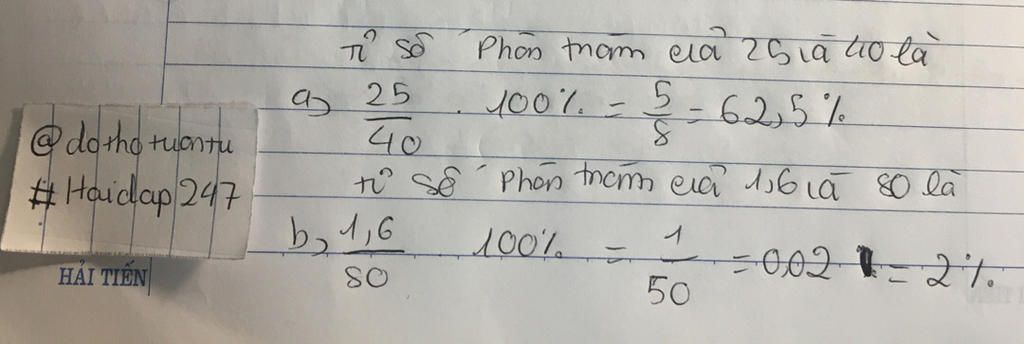 tỉ số phần trăm của 25 và 40 là
a) 25/40 . 100% = 5/8 = 62,5%
@dothotuontu
#Hoidap247
tỉ số phần trăm của 1,6 và 80 là
b, 1,6/80 100% = 1/50 = 0,02 = 2%
HẢI TIẾN